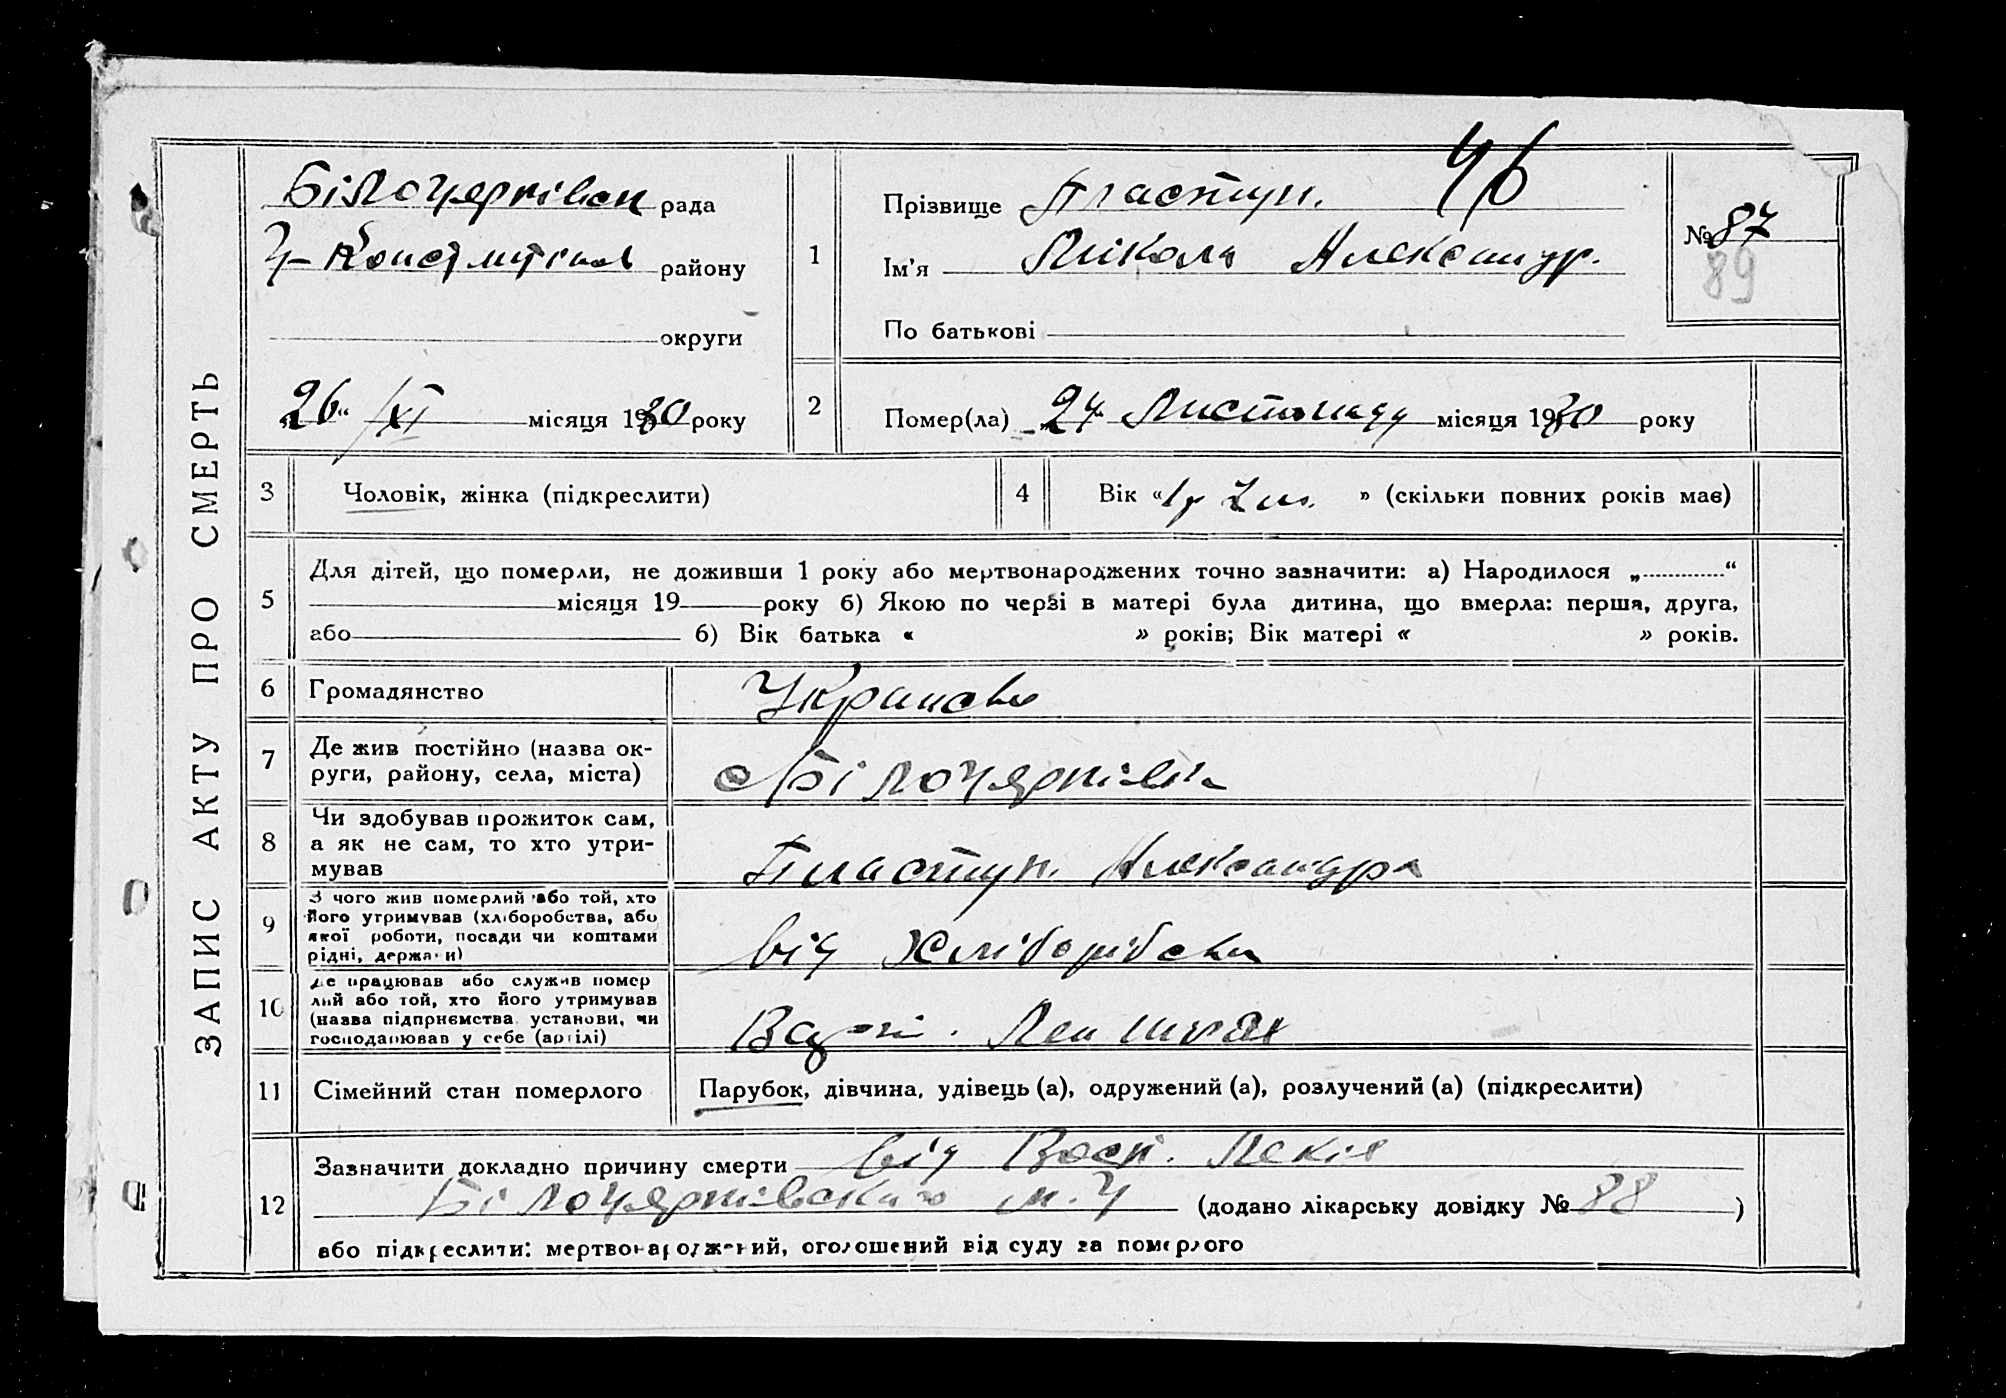 ЗАПИС АКТУ ПРО СМЕРТЬ
Білоцерківськ рада
району
округи
„26“ /XI місяця 1930 року
1
Прізвище Пластун. 46
Ім'я Микола Александр.
По батькові
№ 87
89
2
Помер(ла) „24“ Листопаду місяця 1930 року
3 Чоловік, жінка (підкреслити)
4 Вік « » (скільки повних років має)
5
Для дітей, що померли, не доживши 1 року або мертвонароджених точно зазначити: а) Народилося „ “
місяця 19 року б) Якою по черзі в матері була дитина, що вмерла: перша, друга,
або б) Вік батька « » років; Вік матері « » років.
6 Громадянство
7
Де жив постійно (назва ок-
руги, району, села, міста)
с Білоцерківка
8
Чи здобував прожиток сам,
а як не сам, то хто утри-
мував
Пластун. Александра
9
З чого жив померлий або той, хто
його утримував (хліборобства, або
якої роботи, посади чи коштами
рідні, держави)
від Хліборобства
10
Де працював або служив помер
лий або той, хто його утримував
(назва підприємства, установи, чи
господарював у себе (артілі)
11 Сімейний стан померлого
Парубок, дівчина, удівець (а), одружений (а), розлучений (а) (підкреслити)
12
Зазначити докладно причину смерти від Восп.
Білоцерківского м.У (додано лікарську довідку № 88 )
або підкреслити: мертвонароджений, оголошений від суду за померлого